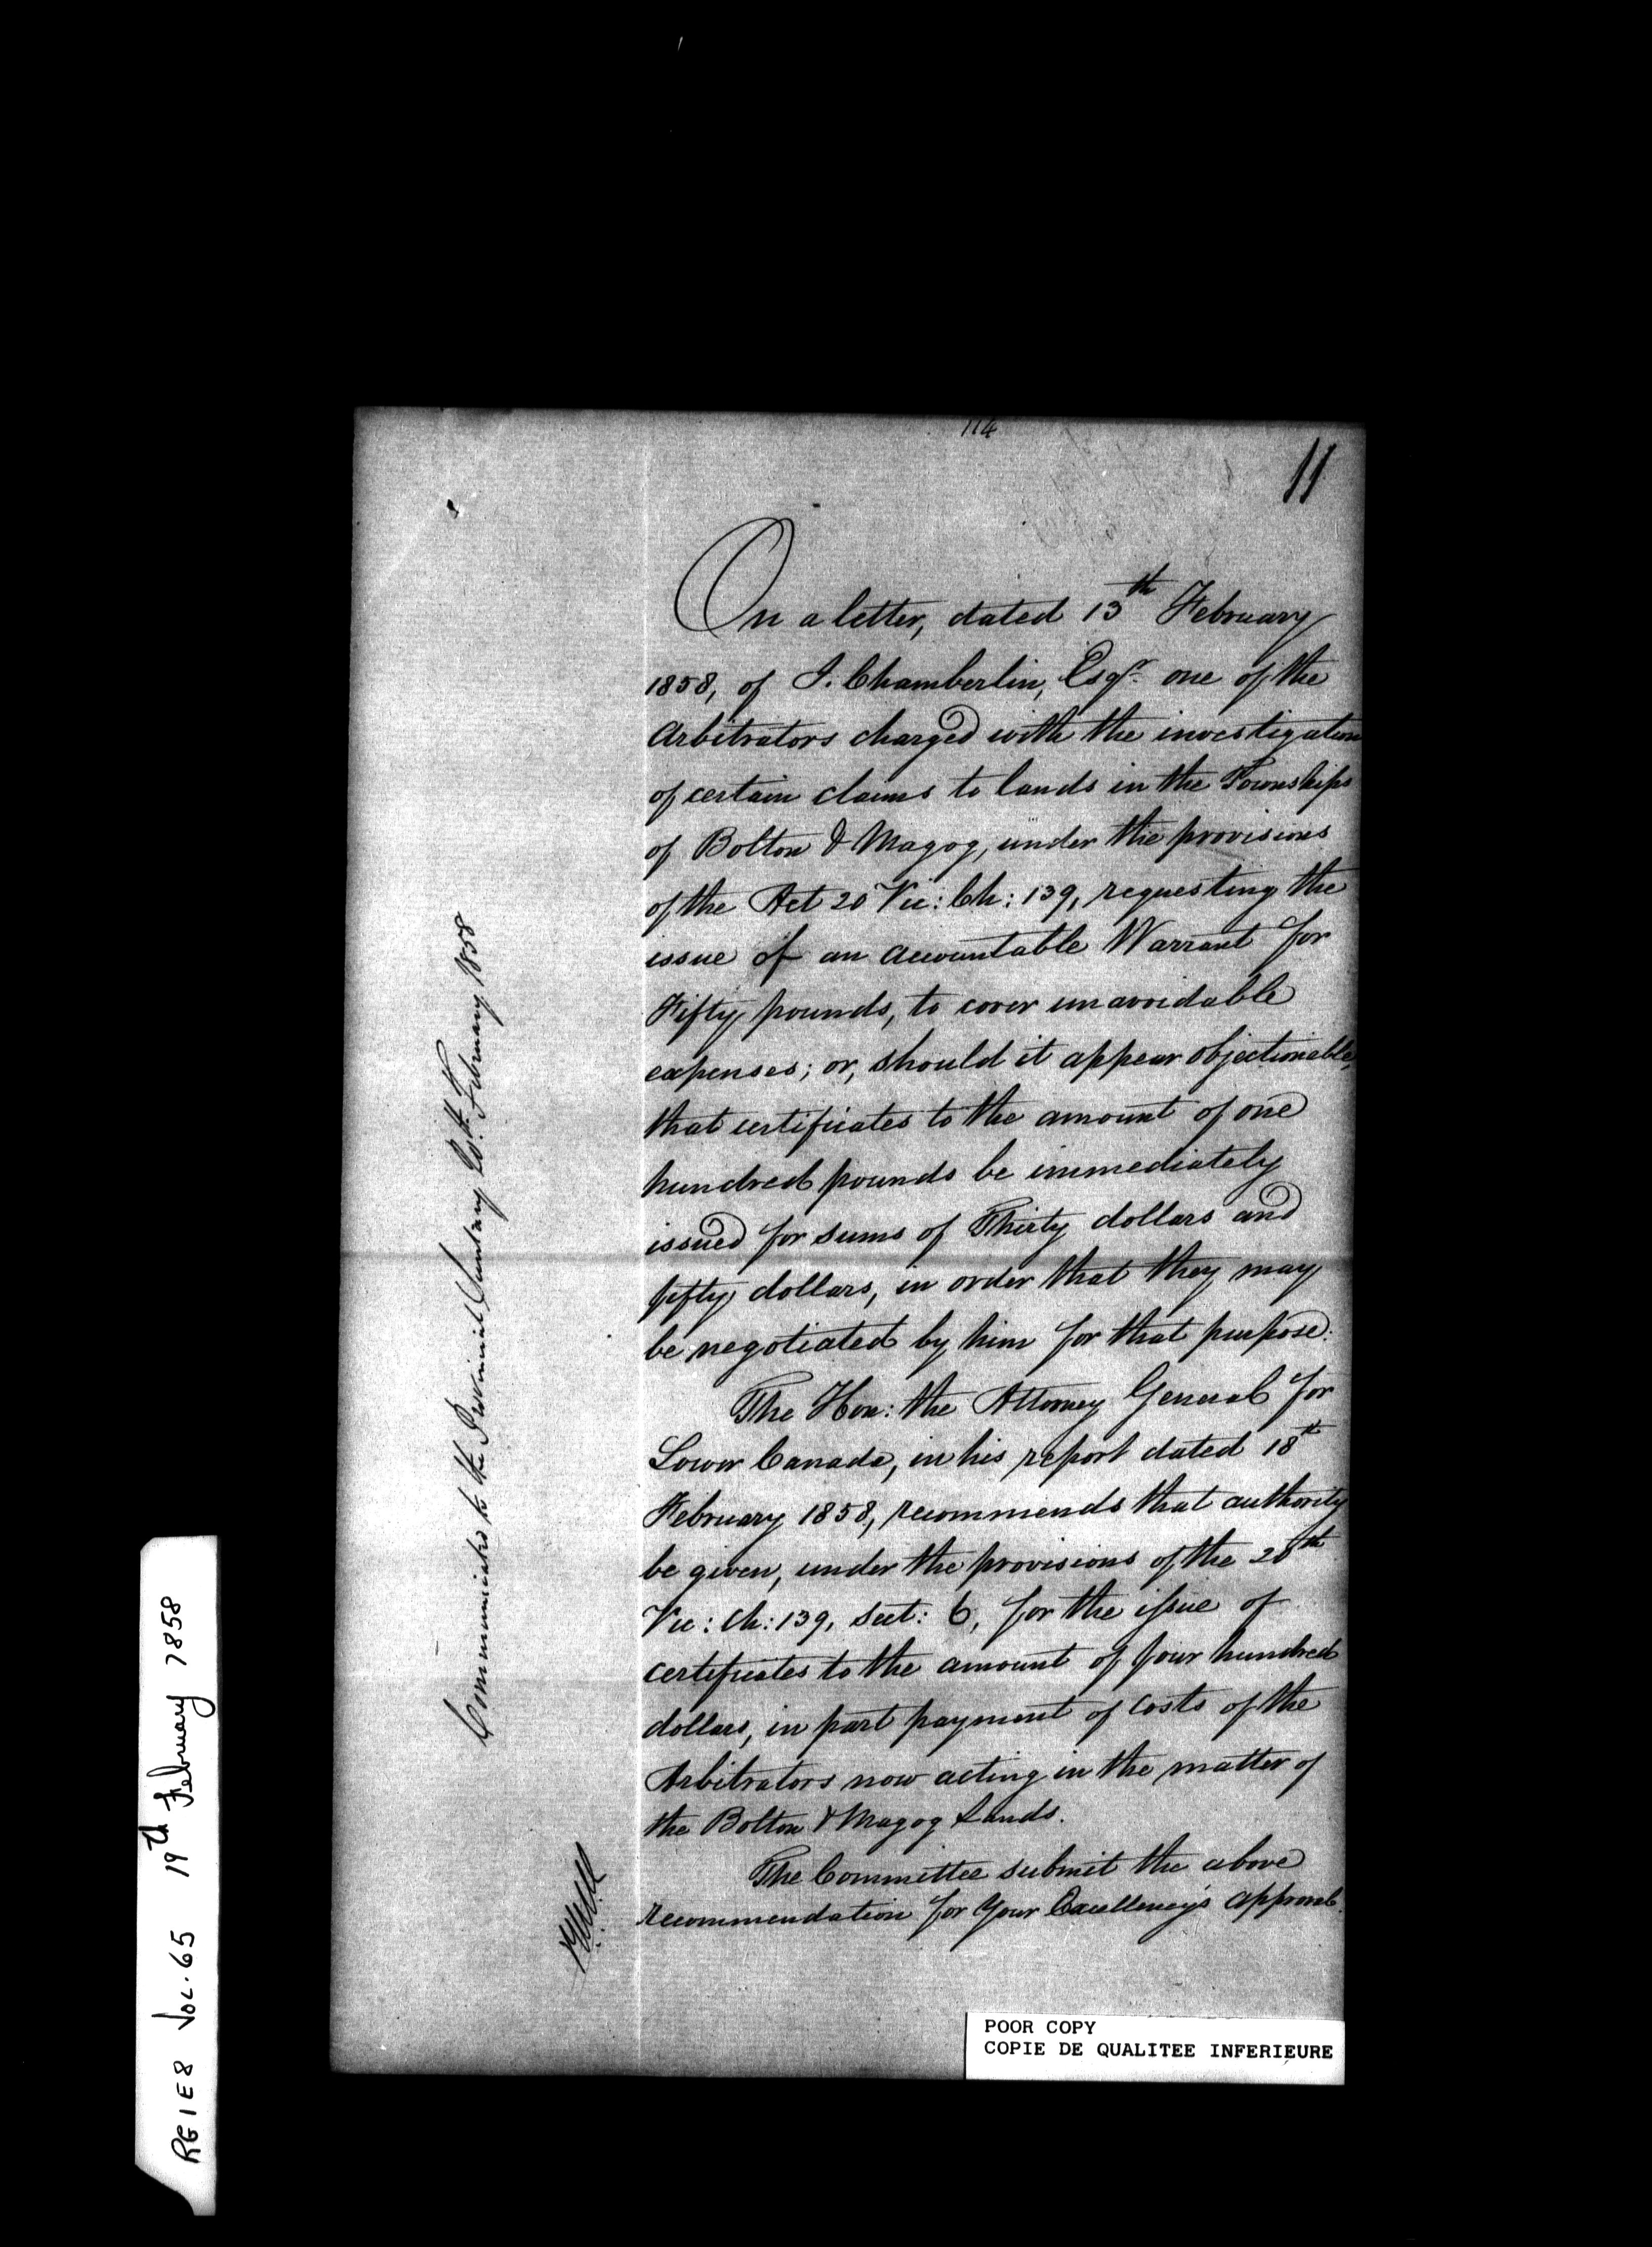 114
11
On a letter, dated 13th February
1858, of J. Chamberlin, Esqr. one of the
Arbitrators charged with the investigation
of certain claims to lands in the Townships
of Bolton & Magog, under the provisions
of the Act 20 Vic: Ch: 139, requesting the
issue of an accountable Warrant for
Fifty pounds, to cover unavoidable
expenses; or, should it appear objectionable,
that certificates to the amount of one
hundred pounds be immediately
issued for sums of Thirty dollars and
fifty dollars, in order that they may
be negotiated by him for that purpose.
The Hon: the Attorney General for
Lower Canada, in his report dated 18th
February 1858, recommends that authority
be given, under the provisions of the 20th
Vic: Ch: 139, sect: 6, for the issue of
certificates to the amount of four hundred
dollars, in part payment of costs of the
Arbitrators now acting in the matter of
the Bolton & Magog Lands.
The Committee submit the above
recommendation for Your Excellency's approval.
Communicated to the Provincial Secretary 20th February 1858
RG 1 E 8 Vol. 65 19th February 1858
POOR COPY
COPIE DE QUALITEE INFERIEURE